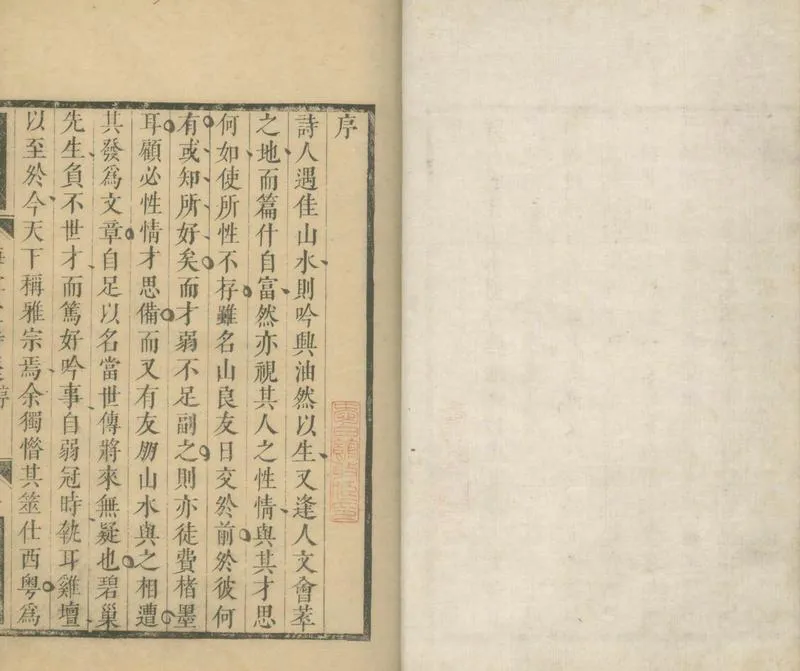 序
詩人遇佳山水則吟興油然以生又逢人文會萃
之地而篇什自富然亦視其人之性情與其才思
何如使所性不存雖名山良友日交於前於彼何
有或知所好矣而才弱不足副之則亦徒費楮墨
耳顧必性情才思備而又有友朋山水與之相遭
其發爲文章自足以名當世傳將來無疑也碧巢
先生負不世才而篤好吟事自弱冠時執耳雞壇
以至於今天下稱雅宗焉余獨惜其筮仕西粤爲